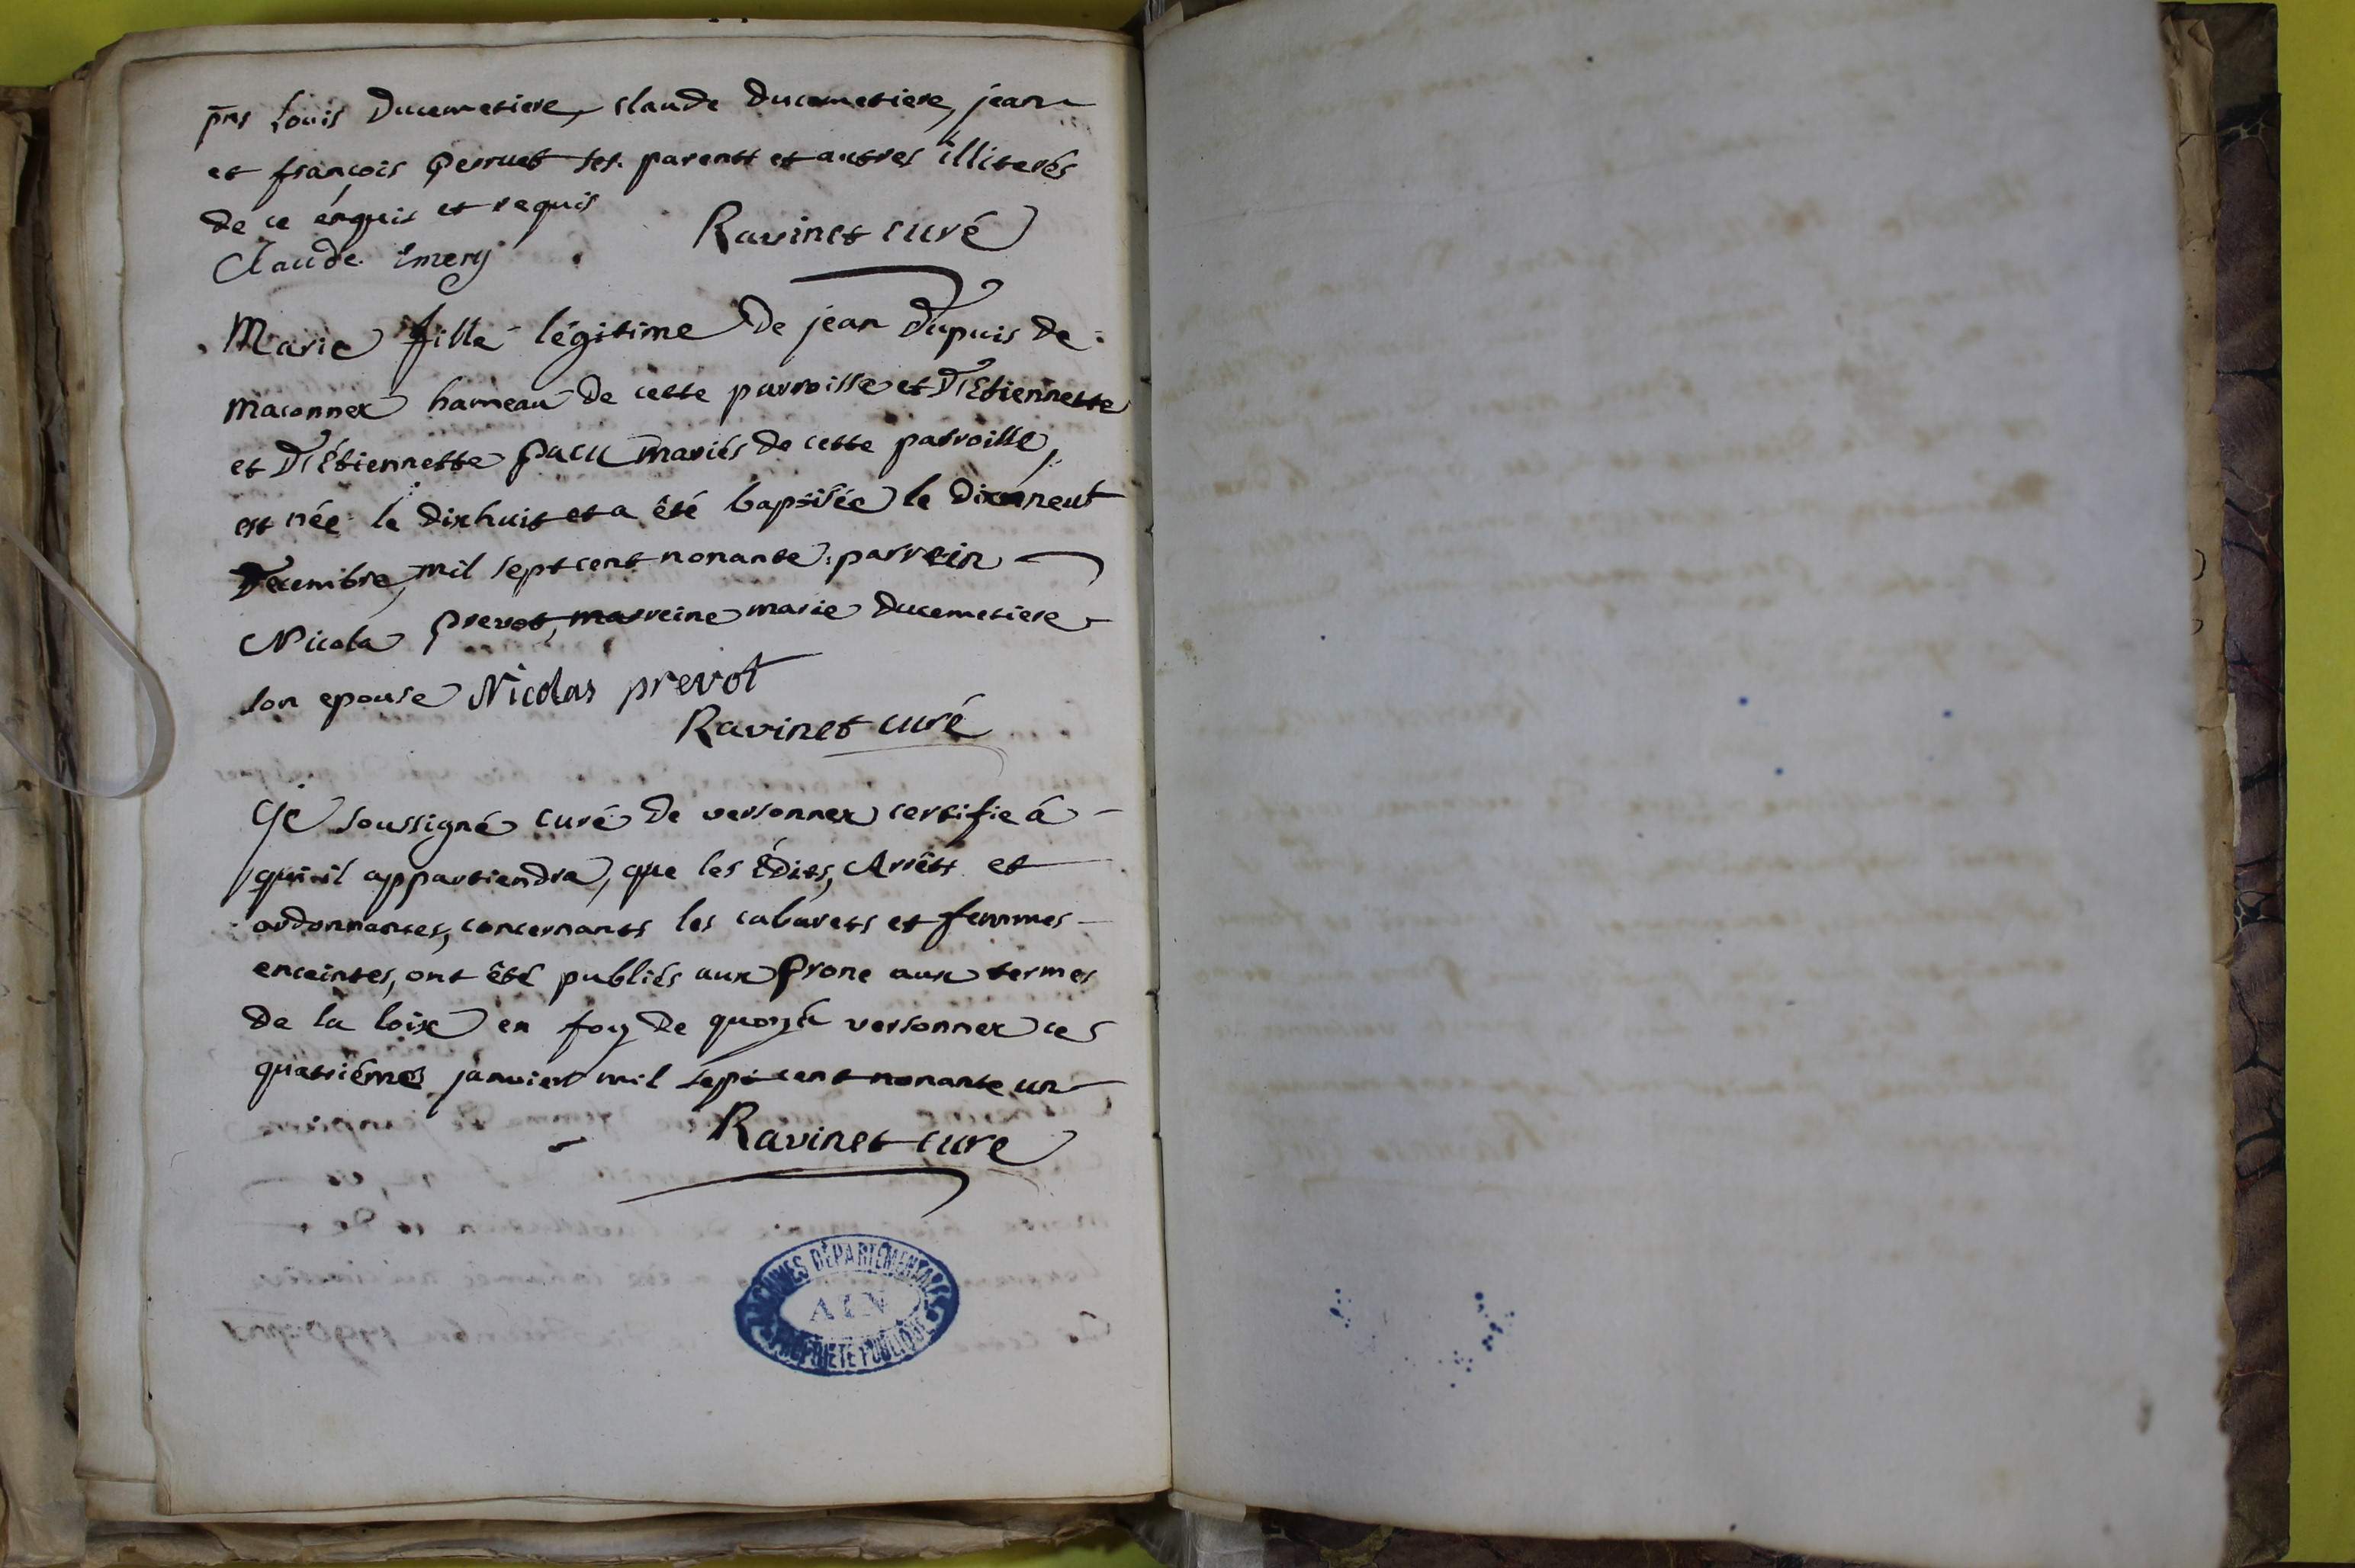 pns Louis Ducemetiere, claude ducemetiere, jean
et françois perruet ses parents et autres illiterés
de ce énquis et requis
Ravinet curé
Claude Emery
Marie fille légitime De jean Dupuis de
maconnex hameau de cette parroisse et D'Etiennette
et D'Etiennette pacu mariés de cette parroisse,
est née le dixhuit et a été baptisée le dixneuf
Decembre, mil sept cent nonante, parrein
Nicola prevot, marreine marie ducemetiere
son epouse Nicolas prevot
Ravinet curé
Je soussigné curé de versonnex certifie á
qui il appartiendra, que les Édits, Arrêts et
ordonnances, concernants les cabarets et femmes
enceintes, ont êté publiés aux prone aux termes
de la loix en foy de quoy á versonnex ce
quatriéme janvier mil sept cent nonante un
Ravinet cure
ARCHIVES DÉPARTEMENTALES
AIN
PROPRIÉTÉ PUBLIQUE